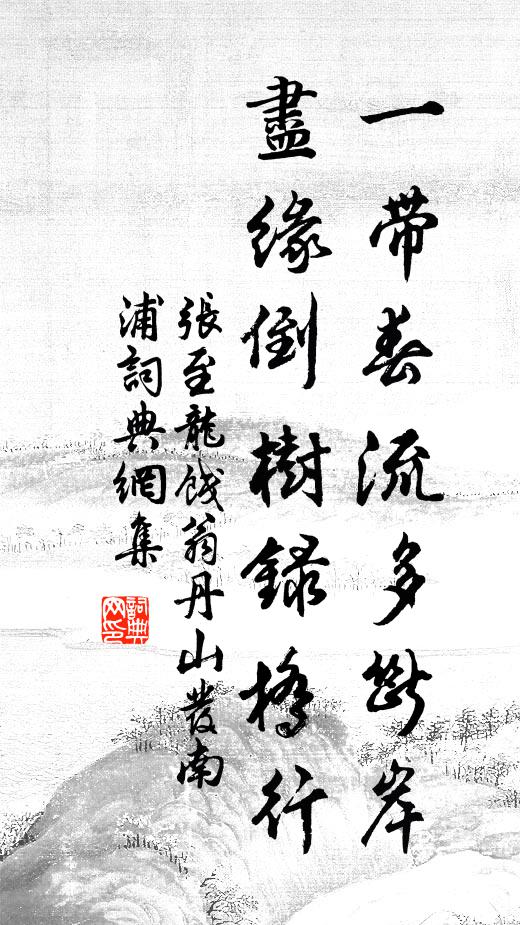 一帶春流多斷岸
盡緣倒樹錄橋行
張至龍餞翁丹山發南
浦詞典網集
詞典网印